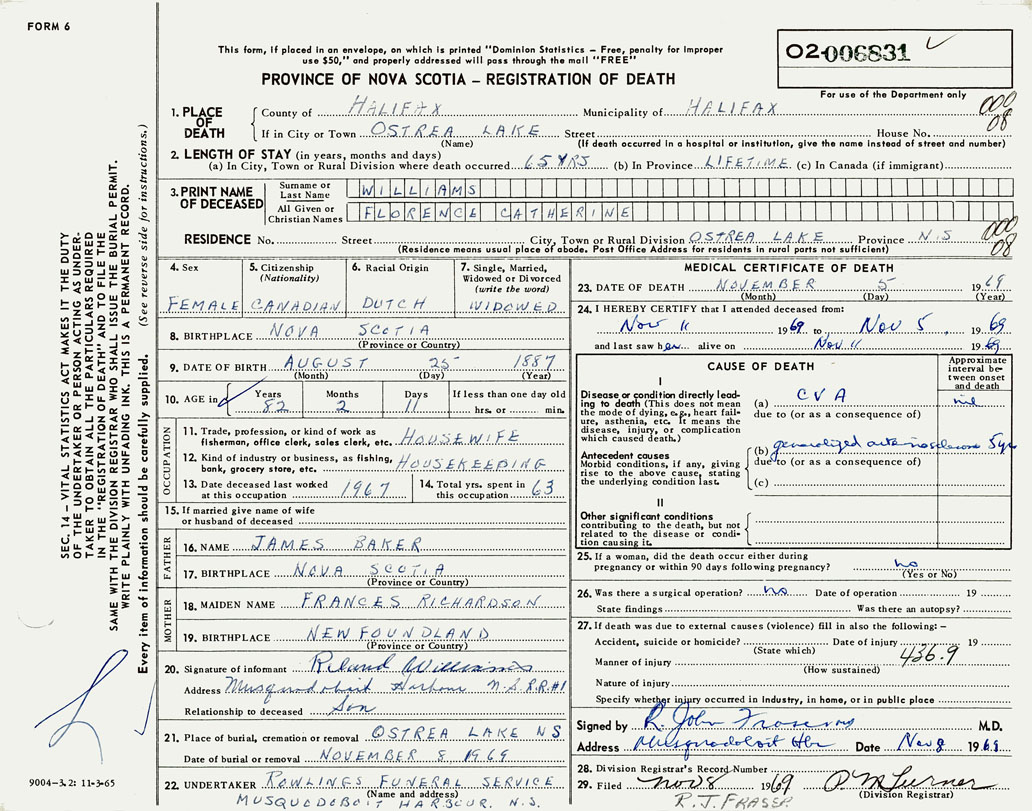 FORM 6
This form, if placed in an envelope, on which is printed "Dominion Statistics – Free, penalty for improper
use $50," and properly addressed will pass through the mail "FREE"
PROVINCE OF NOVA SCOTIA – REGISTRATION OF DEATH
O2-006831
For use of the Department only
SEC. 14 – VITAL STATISTICS ACT MAKES IT THE DUTY
OF THE UNDERTAKER OR PERSON ACTING AS UNDER-
TAKER TO OBTAIN ALL THE PARTICULARS REQUIRED
IN THE "REGISTRATION OF DEATH" AND TO FILE THE
SAME WITH THE DIVISION REGISTRAR WHO SHALL ISSUE THE BURIAL PERMIT.
WRITE PLAINLY WITH UNFADING INK. THIS IS A PERMANENT RECORD.
Every item of information should be carefully supplied. (See reverse side for instructions.)
1. PLACE OF DEATH County of HALIFAX Municipality of HALIFAX 000
If in City or Town OSTREA LAKE Street House No. 08
(Name) (If death occurred in a hospital or institution, give the name instead of street and number)
2. LENGTH OF STAY (in years, months and days)
(a) In City, Town or Rural Division where death occurred 65 YRS (b) In Province LIFETIME (c) In Canada (if immigrant)
3. PRINT NAME OF DECEASED Surname or Last Name WILLIAMS
All Given or Christian Names FLORENCE CATHERINE
RESIDENCE No. Street City, Town or Rural Division OSTREA LAKE Province N.S 000 08
(Residence means usual place of abode. Post Office Address for residents in rural parts not sufficient)
4. Sex FEMALE
5. Citizenship (Nationality) CANADIAN
6. Racial Origin DUTCH
7. Single, Married, Widowed or Divorced (write the word) WIDOWED
8. BIRTHPLACE NOVA SCOTIA
(Province or Country)
9. DATE OF BIRTH AUGUST 25 1887
(Month) (Day) (Year)
10. AGE in Years 82 Months 2 Days 11 If less than one day old hrs. or min.
OCCUPATION
11. Trade, profession, or kind of work as
fisherman, office clerk, sales clerk, etc. HOUSEWIFE
12. Kind of industry or business, as fishing,
bank, grocery store, etc. HOUSEKEEPING
13. Date deceased last worked at this occupation 1967
14. Total yrs. spent in this occupation 63
15. If married give name of wife
or husband of deceased
FATHER
16. NAME JAMES BAKER
17. BIRTHPLACE NOVA SCOTIA
(Province or Country)
MOTHER
18. MAIDEN NAME FRANCES RICHARDSON
19. BIRTHPLACE NEWFOUNDLAND
(Province or Country)
20. Signature of informant Roland Williams
Address Musquodoboit Harbour N.S. R.R.#1
Relationship to deceased Son
21. Place of burial, cremation or removal OSTREA LAKE NS
Date of burial or removal NOVEMBER 8, 1969
22. UNDERTAKER ROWLINGS FUNERAL SERVICE
(Name and address)
MUSQUODOBOIT HARBOUR. N.S.
9004–3.2: 11-3-65
MEDICAL CERTIFICATE OF DEATH
23. DATE OF DEATH NOVEMBER 5 1969
(Month) (Day) (Year)
24. I HEREBY CERTIFY that I attended deceased from:
Nov 1969 to Nov 5 1969
and last saw her alive on Nov 1969
CAUSE OF DEATH
Approximate interval between onset and death
I
Disease or condition directly lead-
ing to death (This does not mean
the mode of dying, e.g., heart fail-
ure, asthenia, etc. It means the
disease, injury, or complication
which caused death.)
(a) CVA nil
due to (or as a consequence of)
Antecedent causes
Morbid conditions, if any, giving
rise to the above cause, stating
the underlying condition last.
(b) generalized 5 yr
due to (or as a consequence of)
(c)
II
Other significant conditions
contributing to the death, but not
related to the disease or condi-
tion causing it.
25. If a woman, did the death occur either during
pregnancy or within 90 days following pregnancy? no
(Yes or No)
26. Was there a surgical operation? no Date of operation 19
State findings Was there an autopsy?
27. If death was due to external causes (violence) fill in also the following: –
Accident, suicide or homicide? Date of injury 19
(State which)
436.9
Manner of injury
(How sustained)
Nature of injury
Specify whether injury occurred in Industry, in home, or in public place
Signed by R. John Fraser M.D.
Address Musquodoboit Hbr Date Nov 8 1969
28. Division Registrar's Record Number
29. Filed Nov 8 1969
(Division Registrar)
R.J. FRASER